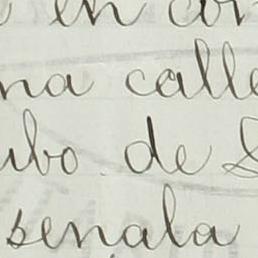 en cor
na calle
ubo de S
senala